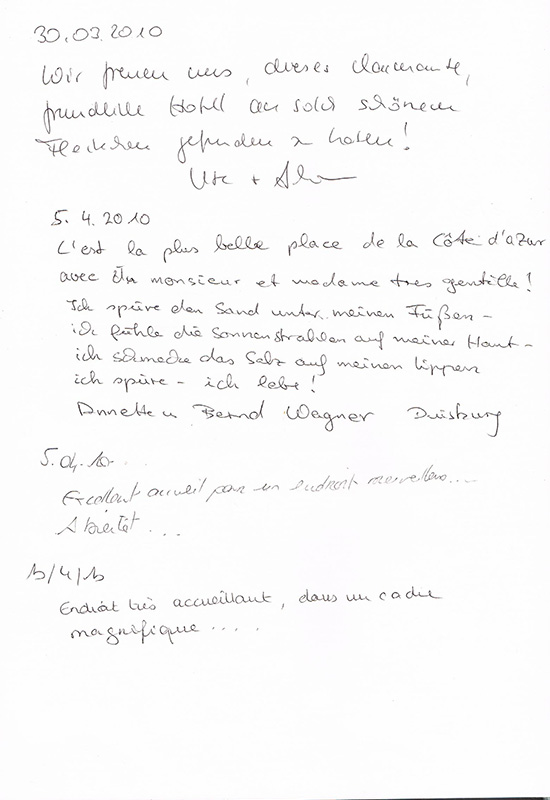 30.03.2010
Wir freuen uns, dieses charmante,
freundliche Hotel an solch schönem
Fleckchen gefunden z haben!
Ute +
5. 4. 2010
C'est la plus belle place de la Côte d'azur
avec un monsieur et madame tres gentille!
Ich spüre den Sand unter meinen Füßen -
ich fühle die Sonnenstrahlen auf meiner Haut -
ich schmecke das Salz auf meinen Lippen
ich spüre - ich lebe!
Annette u Bernd Wagner Duisburg
5.04.10.
Excellent accueil pour un endroit merveilleux...
A bientôt...
Endroit très accueillant, dans un cadre
magnifique.....